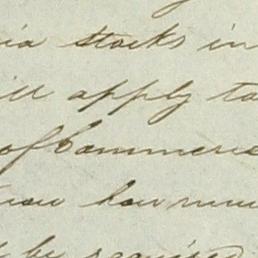 ia stocks in
ill apply to
of Commerce
know how mu
be required